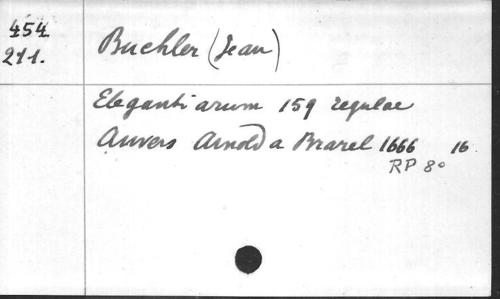 454
211.
Buchler (Jean)
Elegantiarum 159 regulae
Anvers Arnold a Brarel 1666 16
RP 80